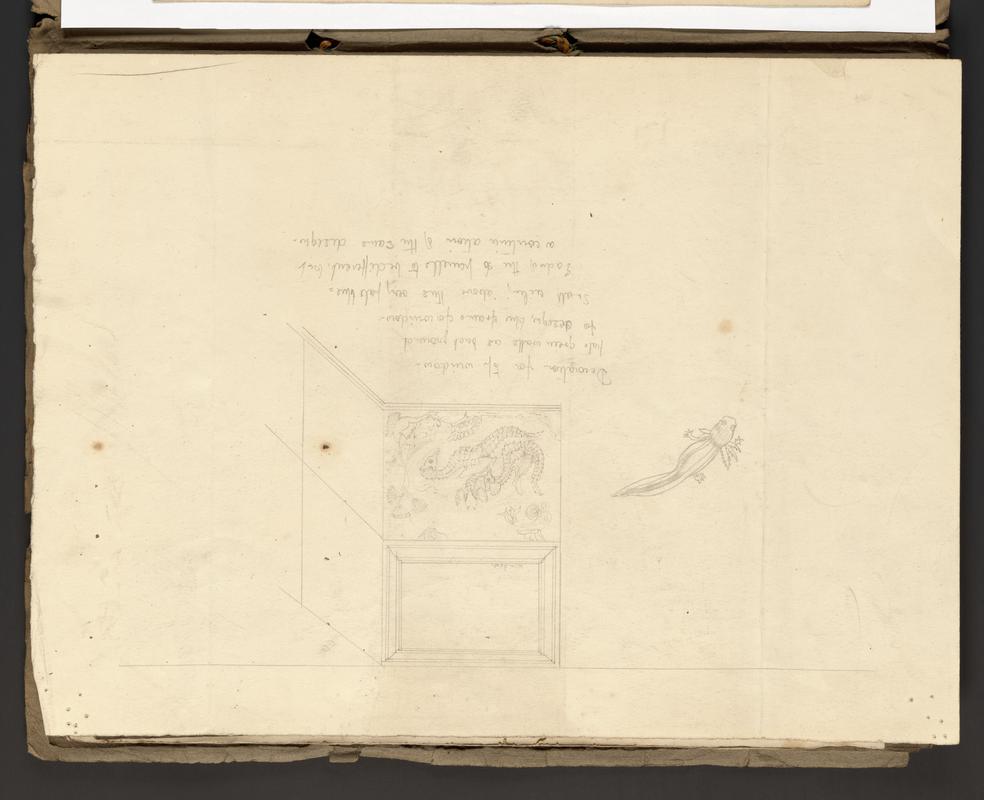 Decoration for window-
pale green walls as back ground
to design, blue frame for window-
Small above this very pale blue=
the panells to be different, but
a continuation of the same design-
window